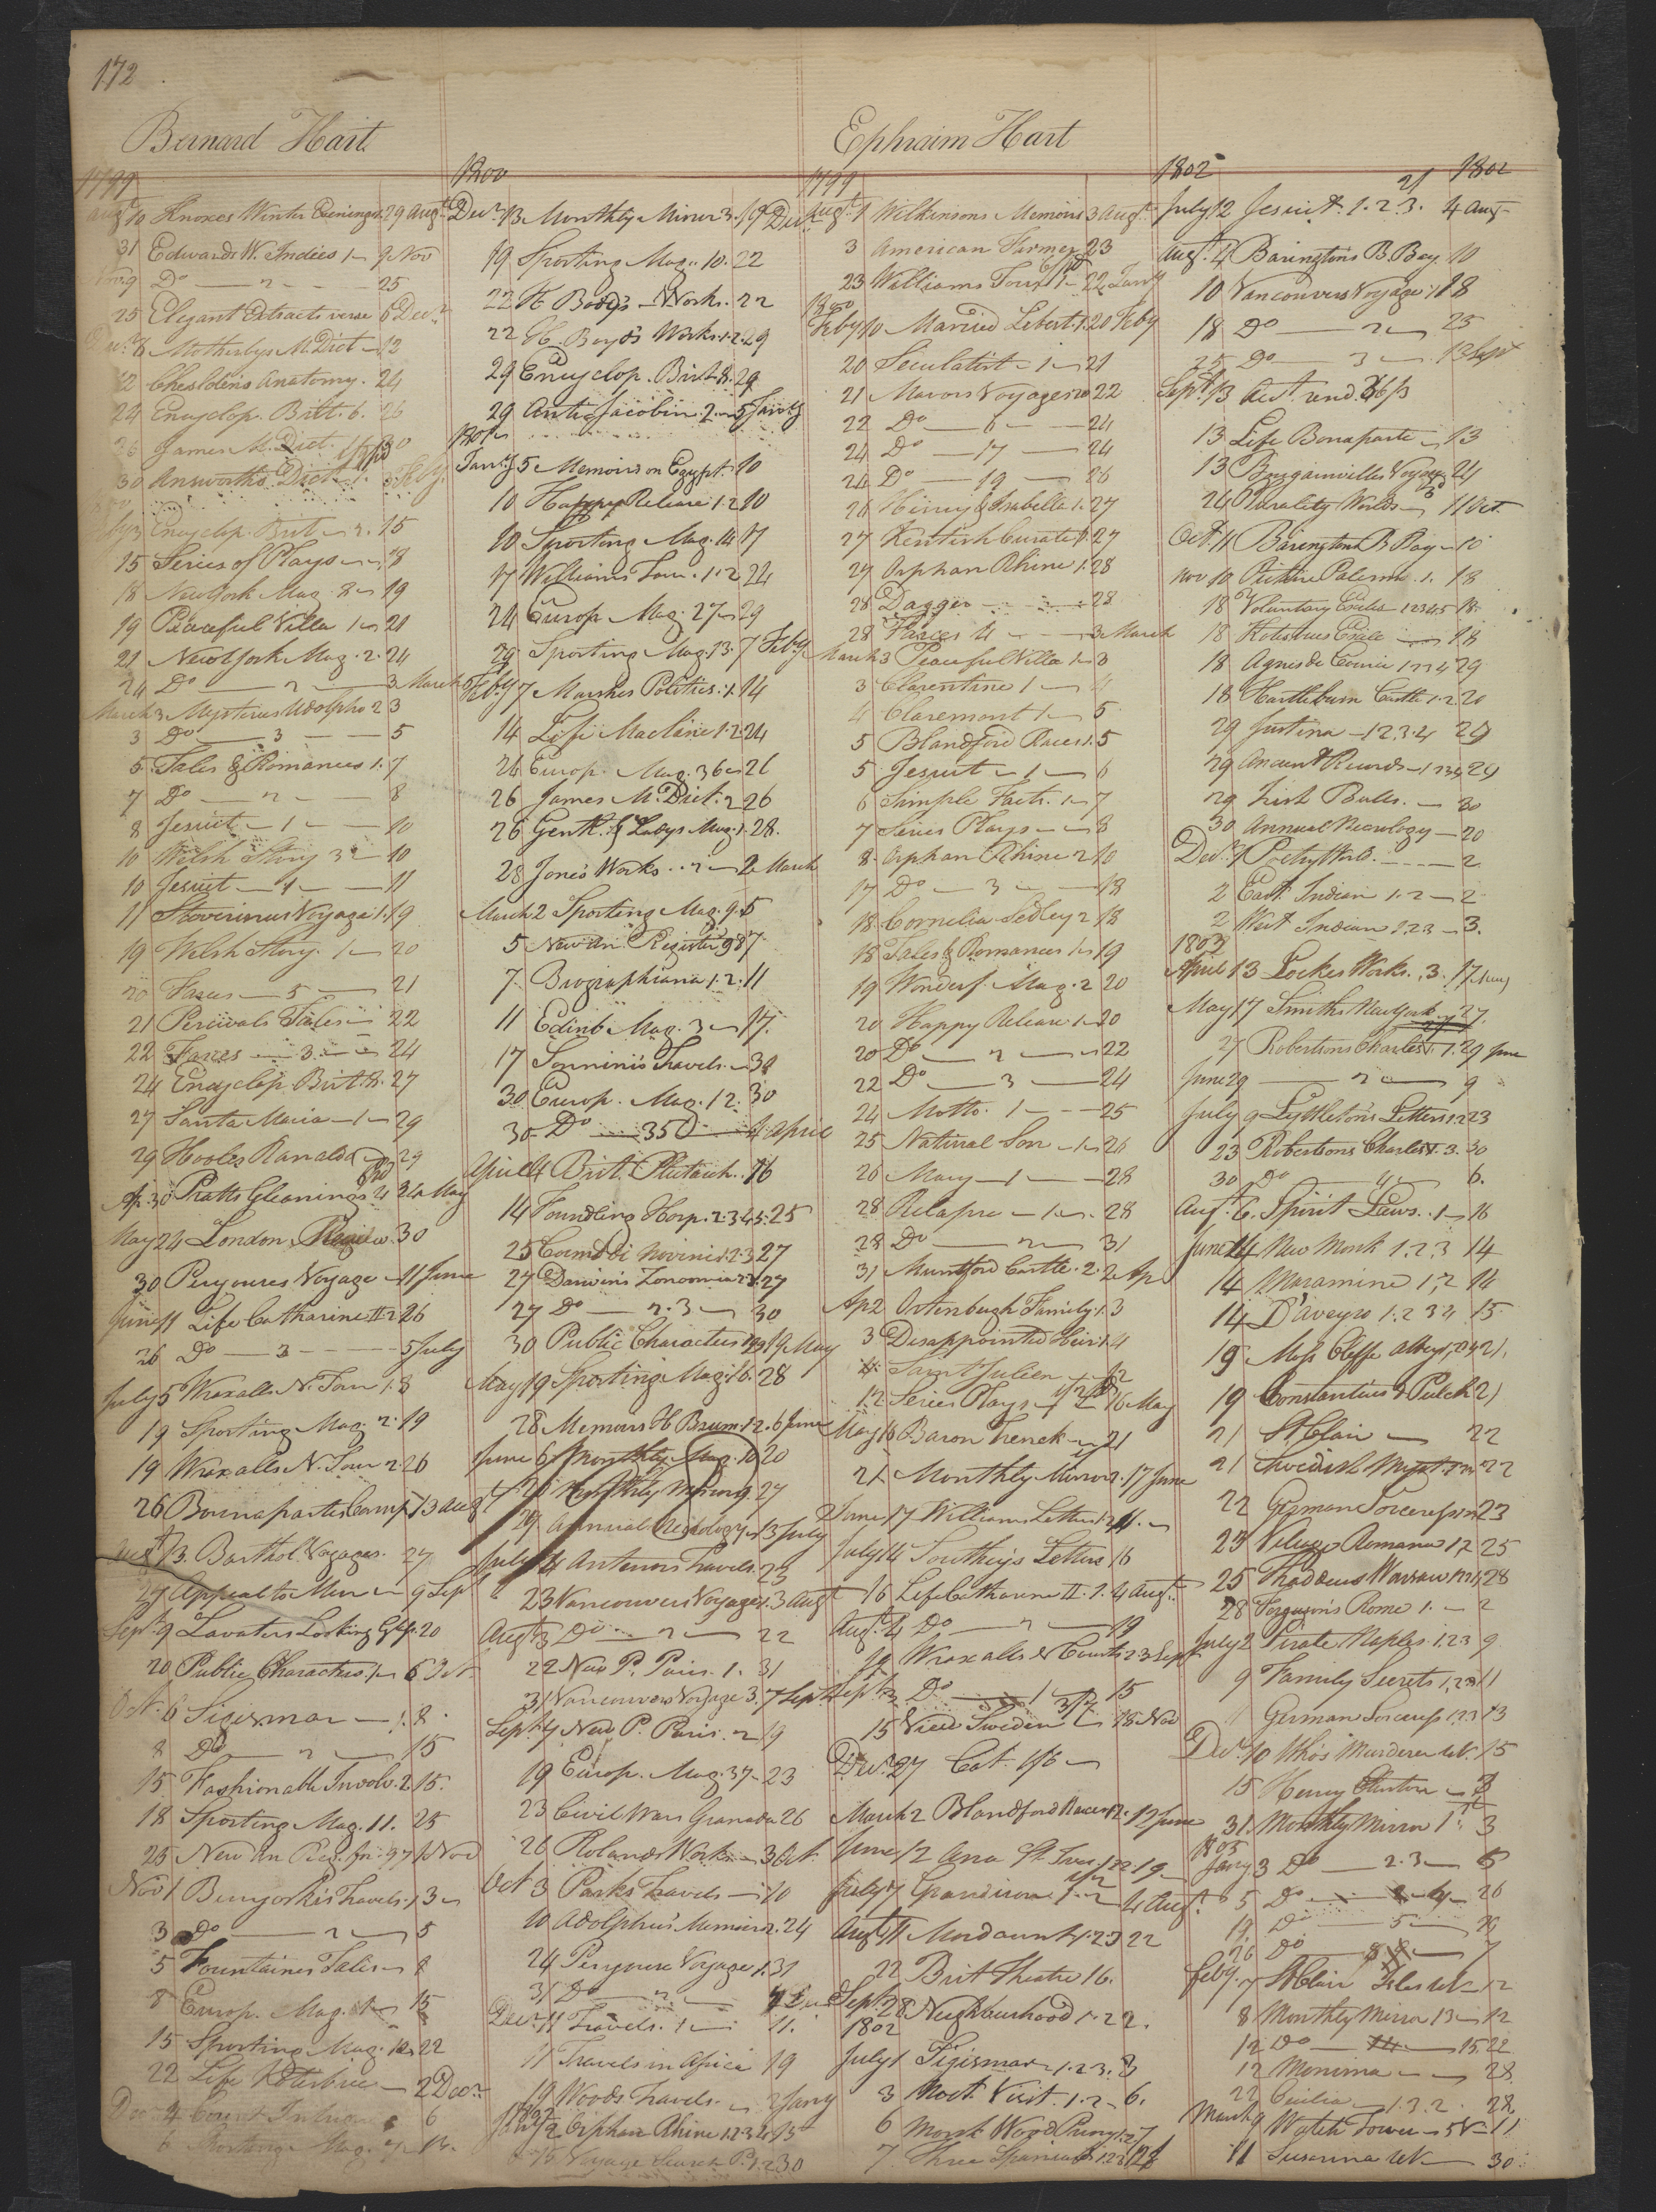 172
Bernard Hart
1799
Augt 10 Knoxes Winter Evenings 1. 29 Augt
31 Edwards W. Indies 1 9 Nov
Nov 9 Do 2 25
25 Elegant Extracts verse 6 Decr
Decr 6 Motherbys M. Dict 12
12 Cheseldens Anatomy. 24
24 Encyclop. Britt. 6. 26
26 James M. Dict. 1 30
30 Answorths Dict 1. Feby.
Encyclop. Brit 2. 15
15 Series of Plays 18
18 New York Mag. 2 19
19 Peaceful Villa 1 21
21 New York Mag. 2. 24
24 Do 2 3 March
March 3 Mysteries Udolpho 2 3
3 Do 3 5
5 Tales & Romances 1. 7
7 Do 2 8
8 Jesuit 1 10
10 Welsh Story 3 10
10 Jesuit 11
11 Stoverinus Voyage 1. 19
19 Welsh Story. 1 20
20 Farces 5 21
21 Percivals Tales 22
22 Farces 3 24
24 Encyclop. Brit. 8. 27
27 Santa Maria 1 29
29 Hooles 29
Ap. 30 Pratts Gleanings 24 May
May 24 London Review 30
30 Perouses Voyage 11 June
June 11 Life Catharine II 2 26
26 Do 3 5 July
July 5 Wraxalls N. Tour 1. 8
19 Sporting Mag. 2. 19
19 Wraxalls N. Tour 2. 26
26 Bonnapartes Camp. 13 Augt
Augt 13. Barthol. Voyages. 27
27 Appeal to Men 9 Sept
Sept 9 Lavaters Looking Glass. 20
20 Public Characters. 1 6 Oct
Oct. 6 Sigismar 1. 8.
8 Do 2 15
15 Fashionable Involv. 2. 15.
18 Sporting Mag. 11. 25
25 New An Reg. for. 97 1 Nov
Nov 1 Benyoskis Travels. 1 3
3 Do 2 5
5 Fountaines Tales 8
8 Europ. Mag. 15
15 Sporting Mag. 12 22
22 Life 2 Decr
6
6 Sporting Mag.
1800
Decr 13 Monthly Mirror 3. 19 Decr
19 Sporting Mag. 10. 22
22 H. Boyd's Works. 22
22 H. Boyd's Works. 1. 2. 29
29 Encyclop. Brit 8. 29
29 Anti Jacobin. 2 5 Jany
1801
Jany 5 Memoirs on Egypt. 10
10 Happy Release 1. 2 10
10 Sporting Mag. 14 17
17 Williams Tour. 1. 2 24
24 Europ Mag. 27 29
29 Sporting Mag. 13. 7 Feby
Feby 7 Marshes Politics. 1. 14
14 Life Maclaine 1. 2. 24
24 Europ. Mag. 36 26
26 James M. Dict. 2 26
26 Gentl. & Ladys Mag. 1. 28.
28 Jones Works. 2 March
March 2 Sporting Mag. 9. 5
5 New An. Register 98 7.
7. Biographiana 1. 2. 11
11 Edinb Mag. 3 17.
17 Sonninis Travels. 30
30 Europ. Mag. 12. 30
30 Do 35 4 April
April 4 Brit. Plutarch. 16
14 Foundling Hosp. 2. 3. 4. 5. 25
25 1. 2. 3 27
27 Darwin's Zoonomia 27
27 Do 2. 3 30
30 Public Characters 19 May
May 19 Sporting Mag. 16. 28
28 Memoirs H Brum. 1. 2. 6 June
June 6 Monthly Mag. 10 20
20 Monthly Mirror 9. 27
29 Annual Necrology 13 July
July 14 Antenors Travels. 23
23 Vancouvers Voyages. 3 Augt
Augt 3 Do 2 22
22 New P. Paris. 1. 31
31 Vancouvers Voyage 3. 7 Sept
Sept 7 New P. Paris. 2 19
19 Europ. Mag. 37 23
23 Civil Wars Granada 26
26 Rolands Works 3 Oct
Oct 3 Parks Travels 10
10 Adolphus' Memoirs. 24
24 Perouse Voyage 1. 31
31 Do 2 Dec
Decr 11 Travels. 1 11.
11 Travels in Africa 19
19 Woods Travels. 2 Jany
Jany 2 Orphan Rhine 1. 2. 3. 4. 15
15 Voyage Search P. 1. 2 30
Ephraim Hart
1799
Augt 1 Wilkinsons Memoirs 3 Augt
3 American Farmer 23
23 Williams Tour 1 22 Jany
1800
Feby 10 Married Libert. 1. 20 Feby
20 Seculatist 1 21
21 Mavors Voyages 20 22
22 Do 6 24
24 Do 17 24
24 Do 19 26
26 Henry & Isabella 1. 27
27 Kentish Curate 1. 27
27 Orphan Rhine 1. 28
28 Dagger 28
28 Farces 4 3 March
March 3 Peaceful Villa 1 3
3 Clarentine 1 4
4 Claremont 1 5
5 Blandford Races 1. 5
5 Jesuit 1 6
6 Simple Facts. 1 7
7 Series Plays 8
8. Orphan Rhine 2 10
17 Do 3 18
18 Cornelia Sedley 2 18
18 Tales & Romances 1 19
19 Wonderf. Mag. 2 20
20 Happy Release 1 20
20 Do 2 22
22 Do 3 24
24 Motto. 1 25
25 Natural Son 1 26
26 Mary 1 28
28 Relapse 1 28
28 Do 2 31
31 Muntford Castle. 2. 2 Ap
Ap 2 Ortenburgh Family. 1. 3
3 Disappointed Heir. 1. 4
4 Saint Julien 12
12 Series Plays 16 May
May 16 Baron Trenck 21
21 Monthly Mirror. 17 June
June 17 Williams Letters
July 14 Southeys Letters 16
16 Life Catharine II. 1. 4 Augt
Augt 4 Do 2 19
19 Wraxalls Courts 2 3 Sept
Sept 3 Do 1 15
15 View Sweden 18 Nov
Decr 27 Cat. 1/6
March 2 Blandford Races 2. 12 June
June 12 Ana St. Ives 1. 2. 2. 19
July 7 Grandison 1. 2 4 Augt
Augt 4 Mordaunt 1. 2. 3 22
22 Brit Theatre 16.
Sept 28 Neighbourhood 1. 2 2.
1802
July 1 Sigismar 1. 2. 3. 3
3 Noct. Visit. 1. 2. 6.
6 Monk Wood Priory 1. 2 7
7 Three Spaniards 1. 2. 3 12
1802 21 1802
July 12 Jesuit. 1. 2. 3. 4 Aug
Augt. 4 Barington's B. Bay. 10
10 Vancouvers Voyage 1 18
18 Do 2 25
25 Do 3 13 Sept
Sept. 13
13 Life Bonaparte 13
13 Bougainvilles Voyage 24
24 Plurality Worlds 11 Oct
Oct. 11 Barington B Bay 10
Nov 10 Palerm. 1. 18
18 Voluntary Exile 1 2 3 4 5 18.
18 Kotzbues Exile 18
18 Agnes de 1 2 3 4 29
18 Hartlebourn Castle 1. 2. 20
29 Justina 1. 2. 3. 4 29
29 Ancient Records 1 2 3 4 29
29 Irish Bulls. 30
30 Annual Necrology 20
Decr 1 Poetry World. 2
2 East Indian 1. 2 2
2 West Indian 1. 2. 3 3.
1803
April 13 Lockes Works. 3. 17 May
May 17 Smiths New York. 27.
27 Robertsons Charles V. 1. 29 June
June 29 2 9
July 9 Lyttletons Letters 1. 2 23
23 Robertsons Charles V. 3. 30
30 Do 4 6.
Augt. 6. Spirit Laws. 1 16
June 14 New Monk 1. 2. 3 14
14 Mazamine 1. 2 14
14 D'aveyro 1. 2 3 4 15.
19 Moss Cliffe Abbey 21.
19 Constantius & Pulch 21
21 St Clair 22
21 Swedish Myst. 22
22 German Sorceress 23
23 Village Romance 1. 2 25
25 Thaddeus Warsaw 28
28 Fergusons Rome 1. 2
July 2 Pirate Naples 1. 2 3 9
9 Family Secrets 1. 2 3 11
German Sorceress 1. 2 3 13
Decr. 10 Who's Murderer 15
15 Henry
31. Monthly Mirror 1 3
1805
Jany 3 Do 2. 3 5
5 Do 4 26
19 Do 5 26
26 Do 8 7
Feby. 7 St Clair Isles 12
8 Monthly Mirror 13 12
12 Do 14 15 22
12 Monima 28
22 Cicilia 1. 3. 2. 28
March 9 Watch Tower 5 V 11
11 Susanna 30.